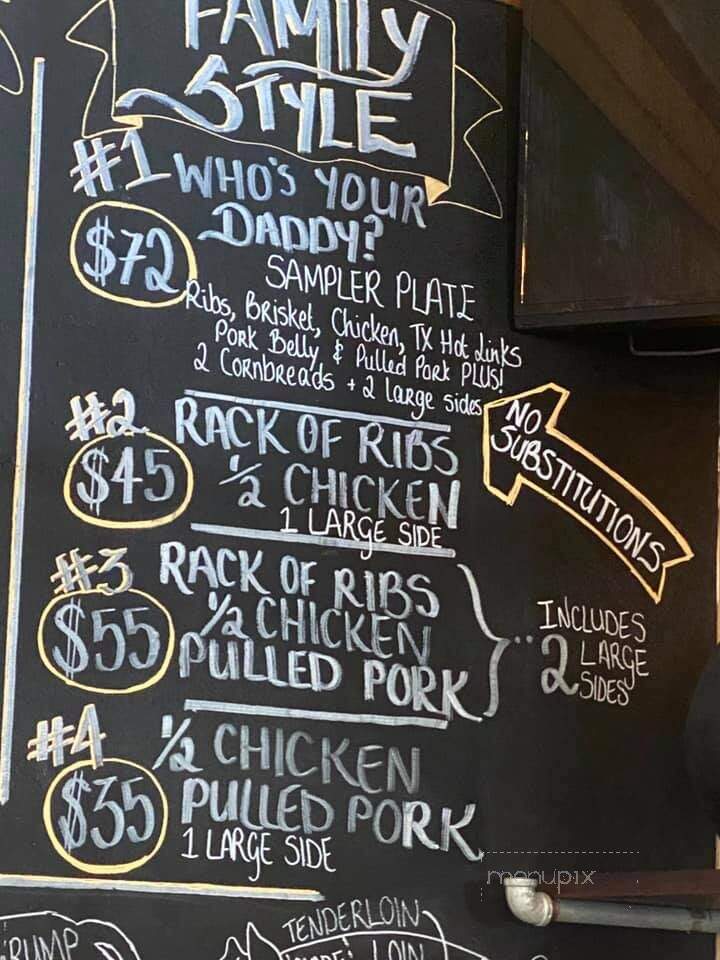 FAMILY
STYLE
#1 WHO'S YOUR
DADDY?
$72
SAMPLER PLATE
Ribs, Brisket, Chicken, TX Hot Links
Pork Belly, & Pulled Pork PLUS!
2 Cornbreads + 2 large sides
NO
SUBSTITUTIONS
#2 RACK OF RIBS
$45 1/2 CHICKEN
1 LARGE SIDE
#3 RACK OF RIBS
$55 1/2 CHICKEN
PULLED PORK
INCLUDES
2 LARGE
SIDES
#4 1/2 CHICKEN
$35 PULLED PORK
1 LARGE SIDE
menupix
RUMP
TENDERLOIN
LOIN